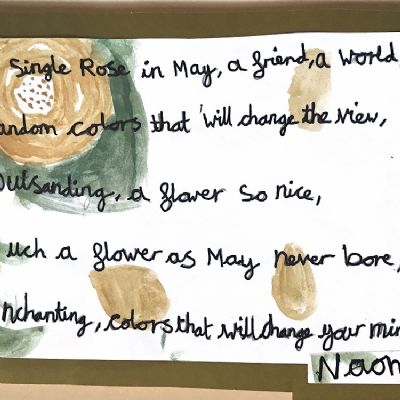 Single Rose in May, a friend, a world,
andom colors that will change the view,
Outsanding, a flower so nice,
uch a flower as May never bore,
nchanting, colors that will change your min
Naom